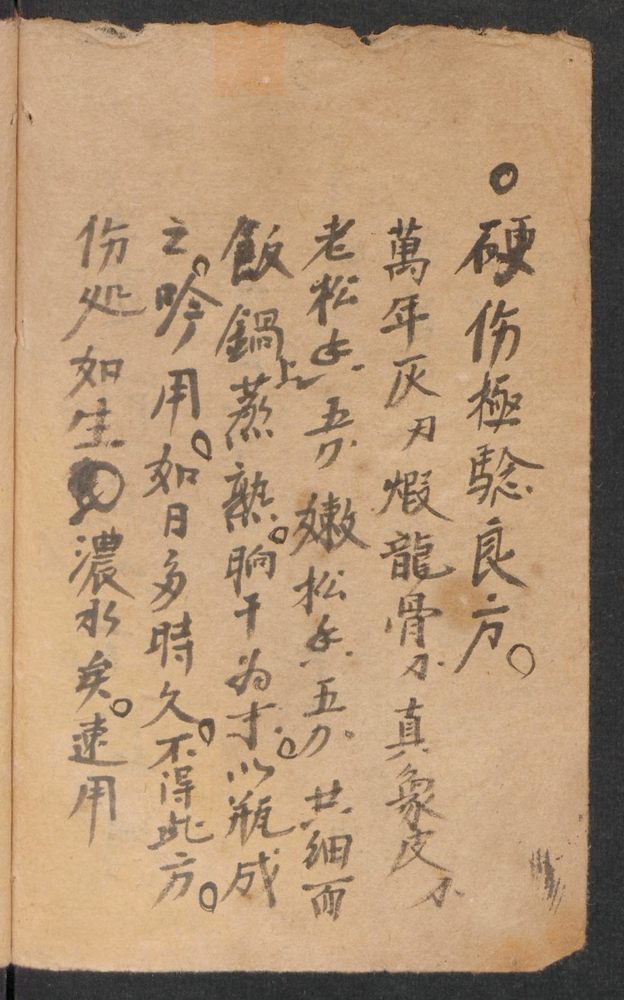 ○硬伤極驗良方。
萬年灰刃煆龍骨刃真象皮
老松香吾分嫩松香五分共細面
飯鍋上蒸熟。晌干为才。以瓶成
之。吟用。如日多時久。不得此方。
伤处如生濃水矣。速用